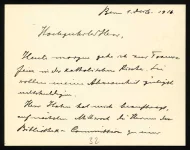 Bern 9. Dezb. 1916
Hochgeehrter Herr,
Heute morgen gehe ich zur Trauer-
feier in der katholischen Kirche. Sie
wollen meine Abwesenheit gütigst
entschuldigen.
Herr Hahn hat mich beauftragt,
auf nächsten Mittwoch die Herren der
Bibliothek-Commission zu einer